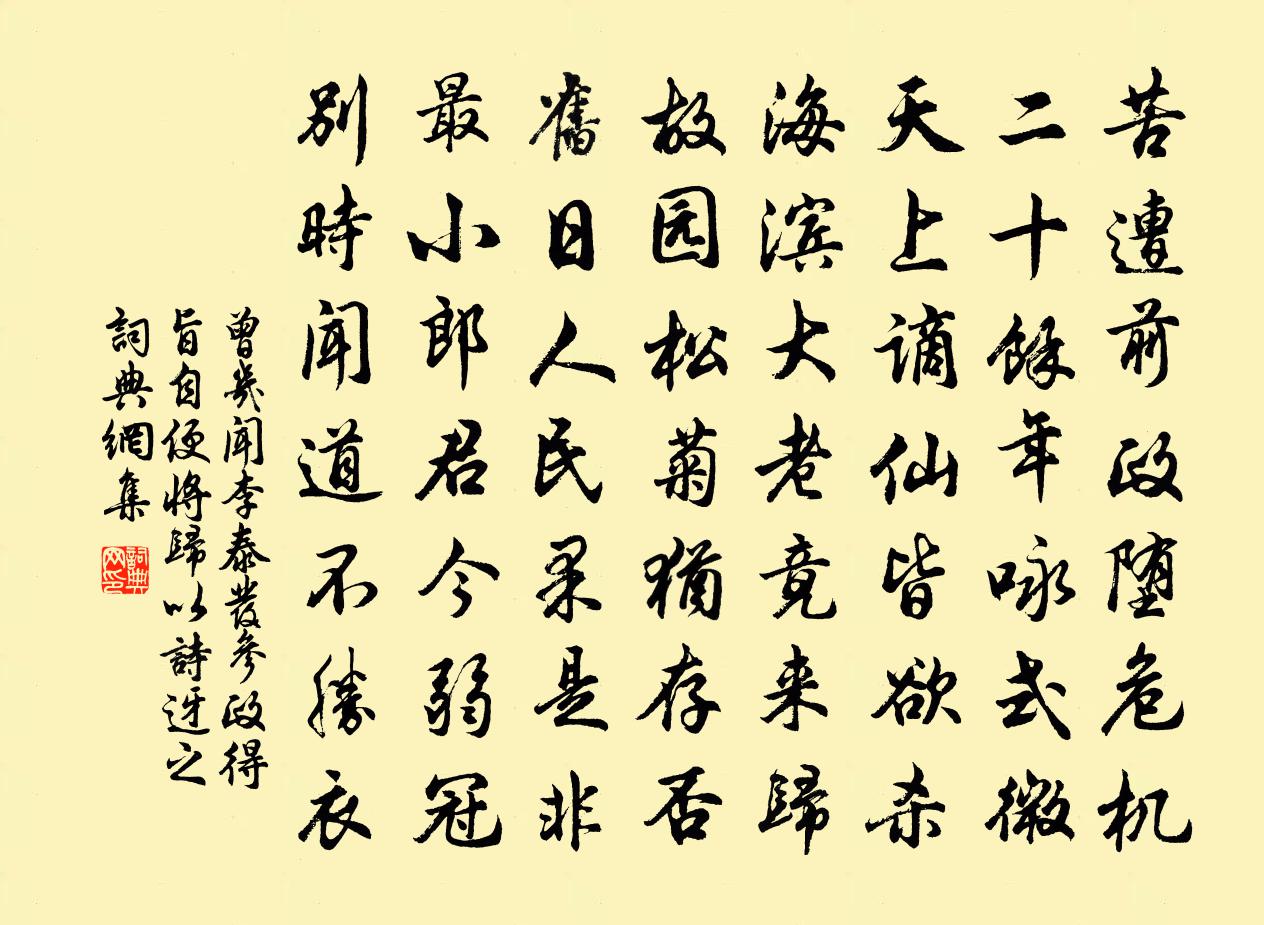 苦遭前政堕危机
二十餘年咏式微
天上谪仙皆欲杀
海滨大老竟来歸
故园松菊猶存否
舊日人民果是非
最小郎君今弱冠
别時闻道不勝衣
曾幾闻李泰發參政得
旨自便将歸以詩迓之
詞典網集
詞典网印